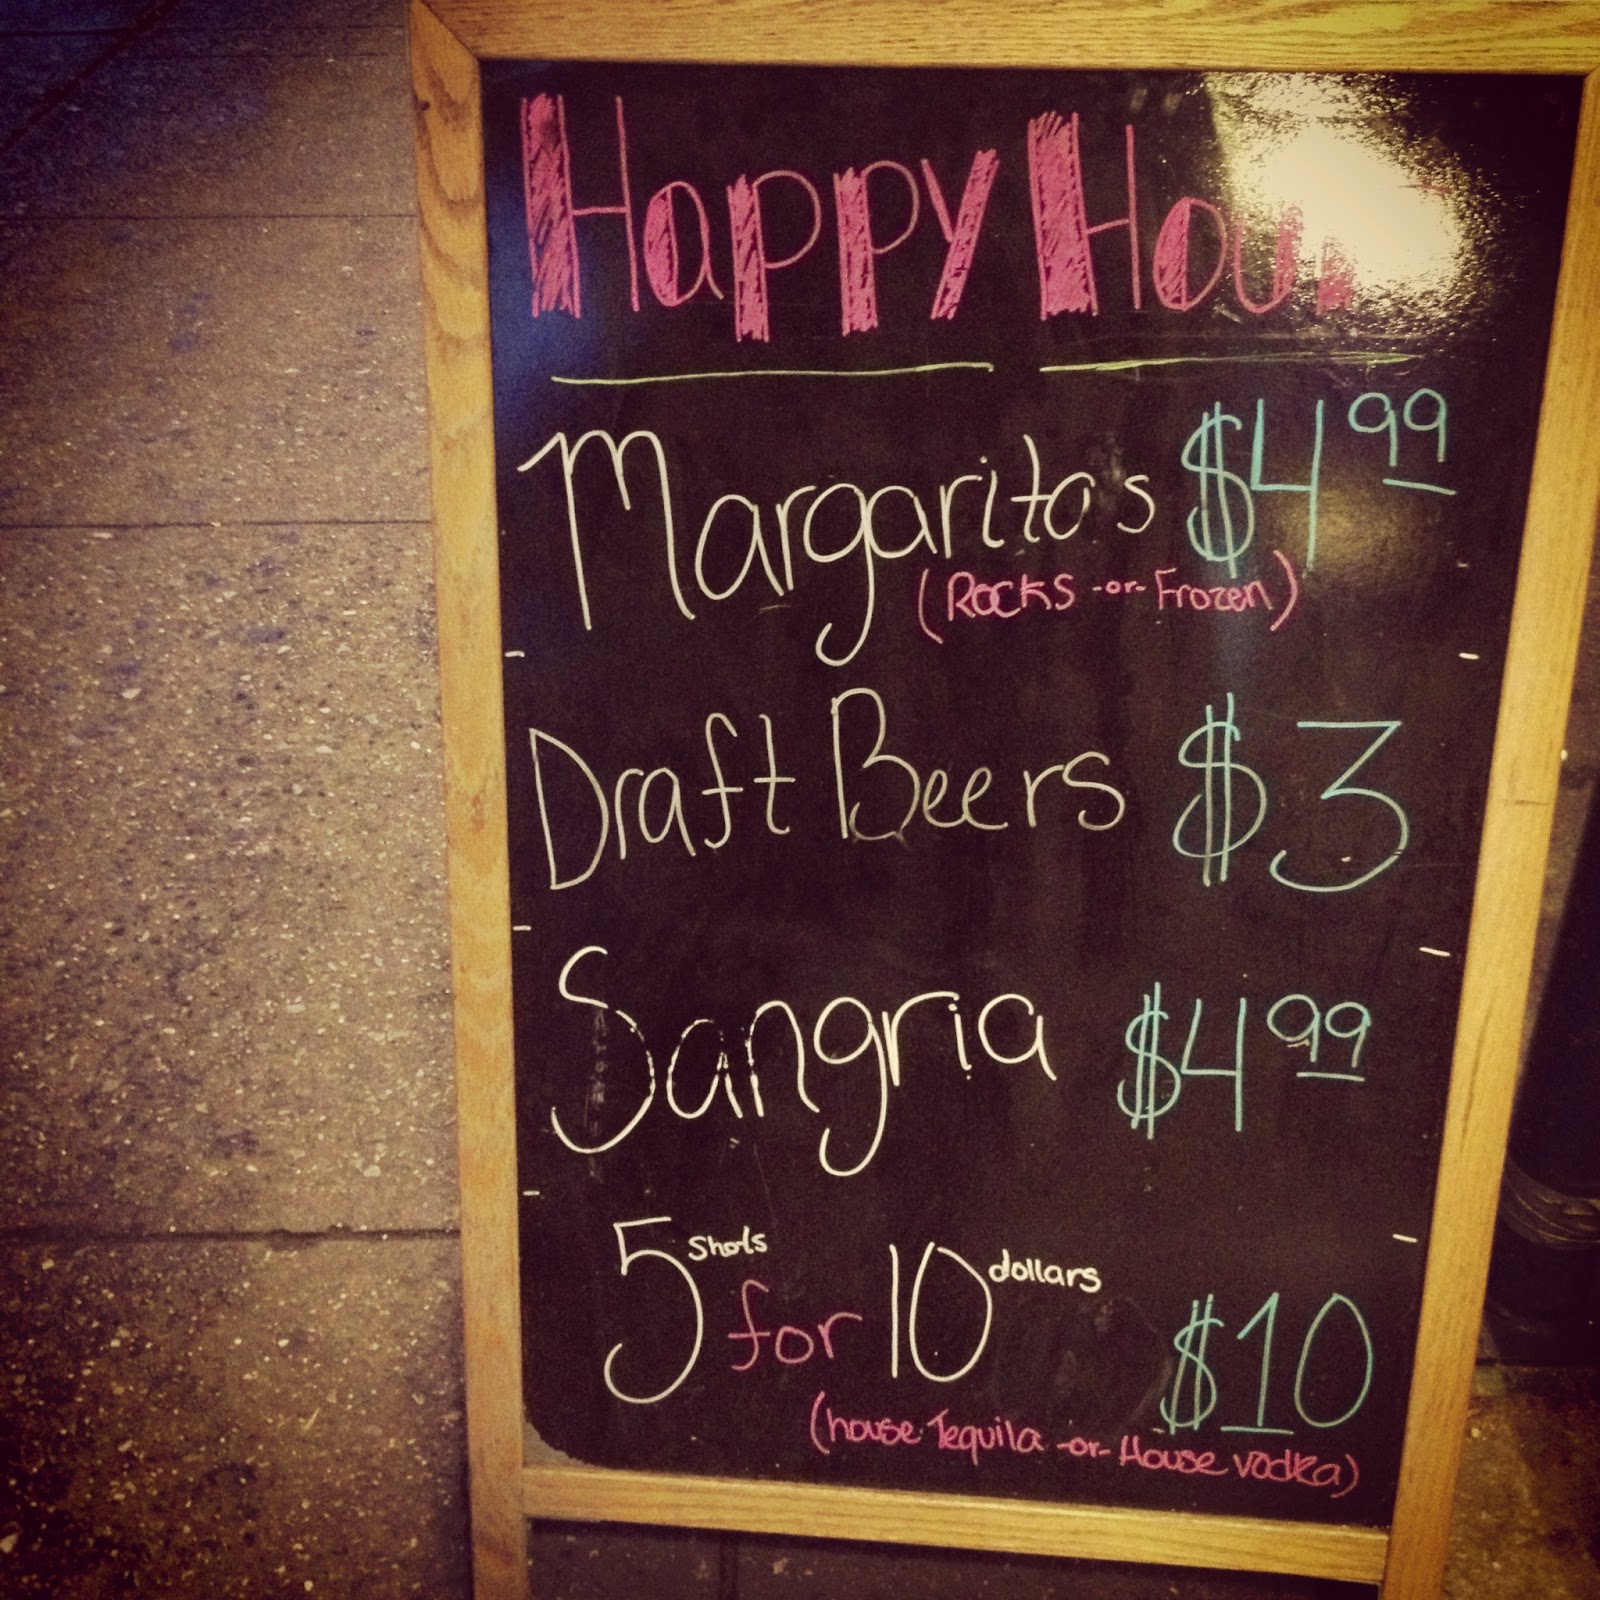 Happy Hour
Margaritas $4.99
(Rocks -or- Frozen)
Draft Beers $3
Sangria $4.99
5 shots for 10 dollars $10
(house Tequila -or- House vodka)